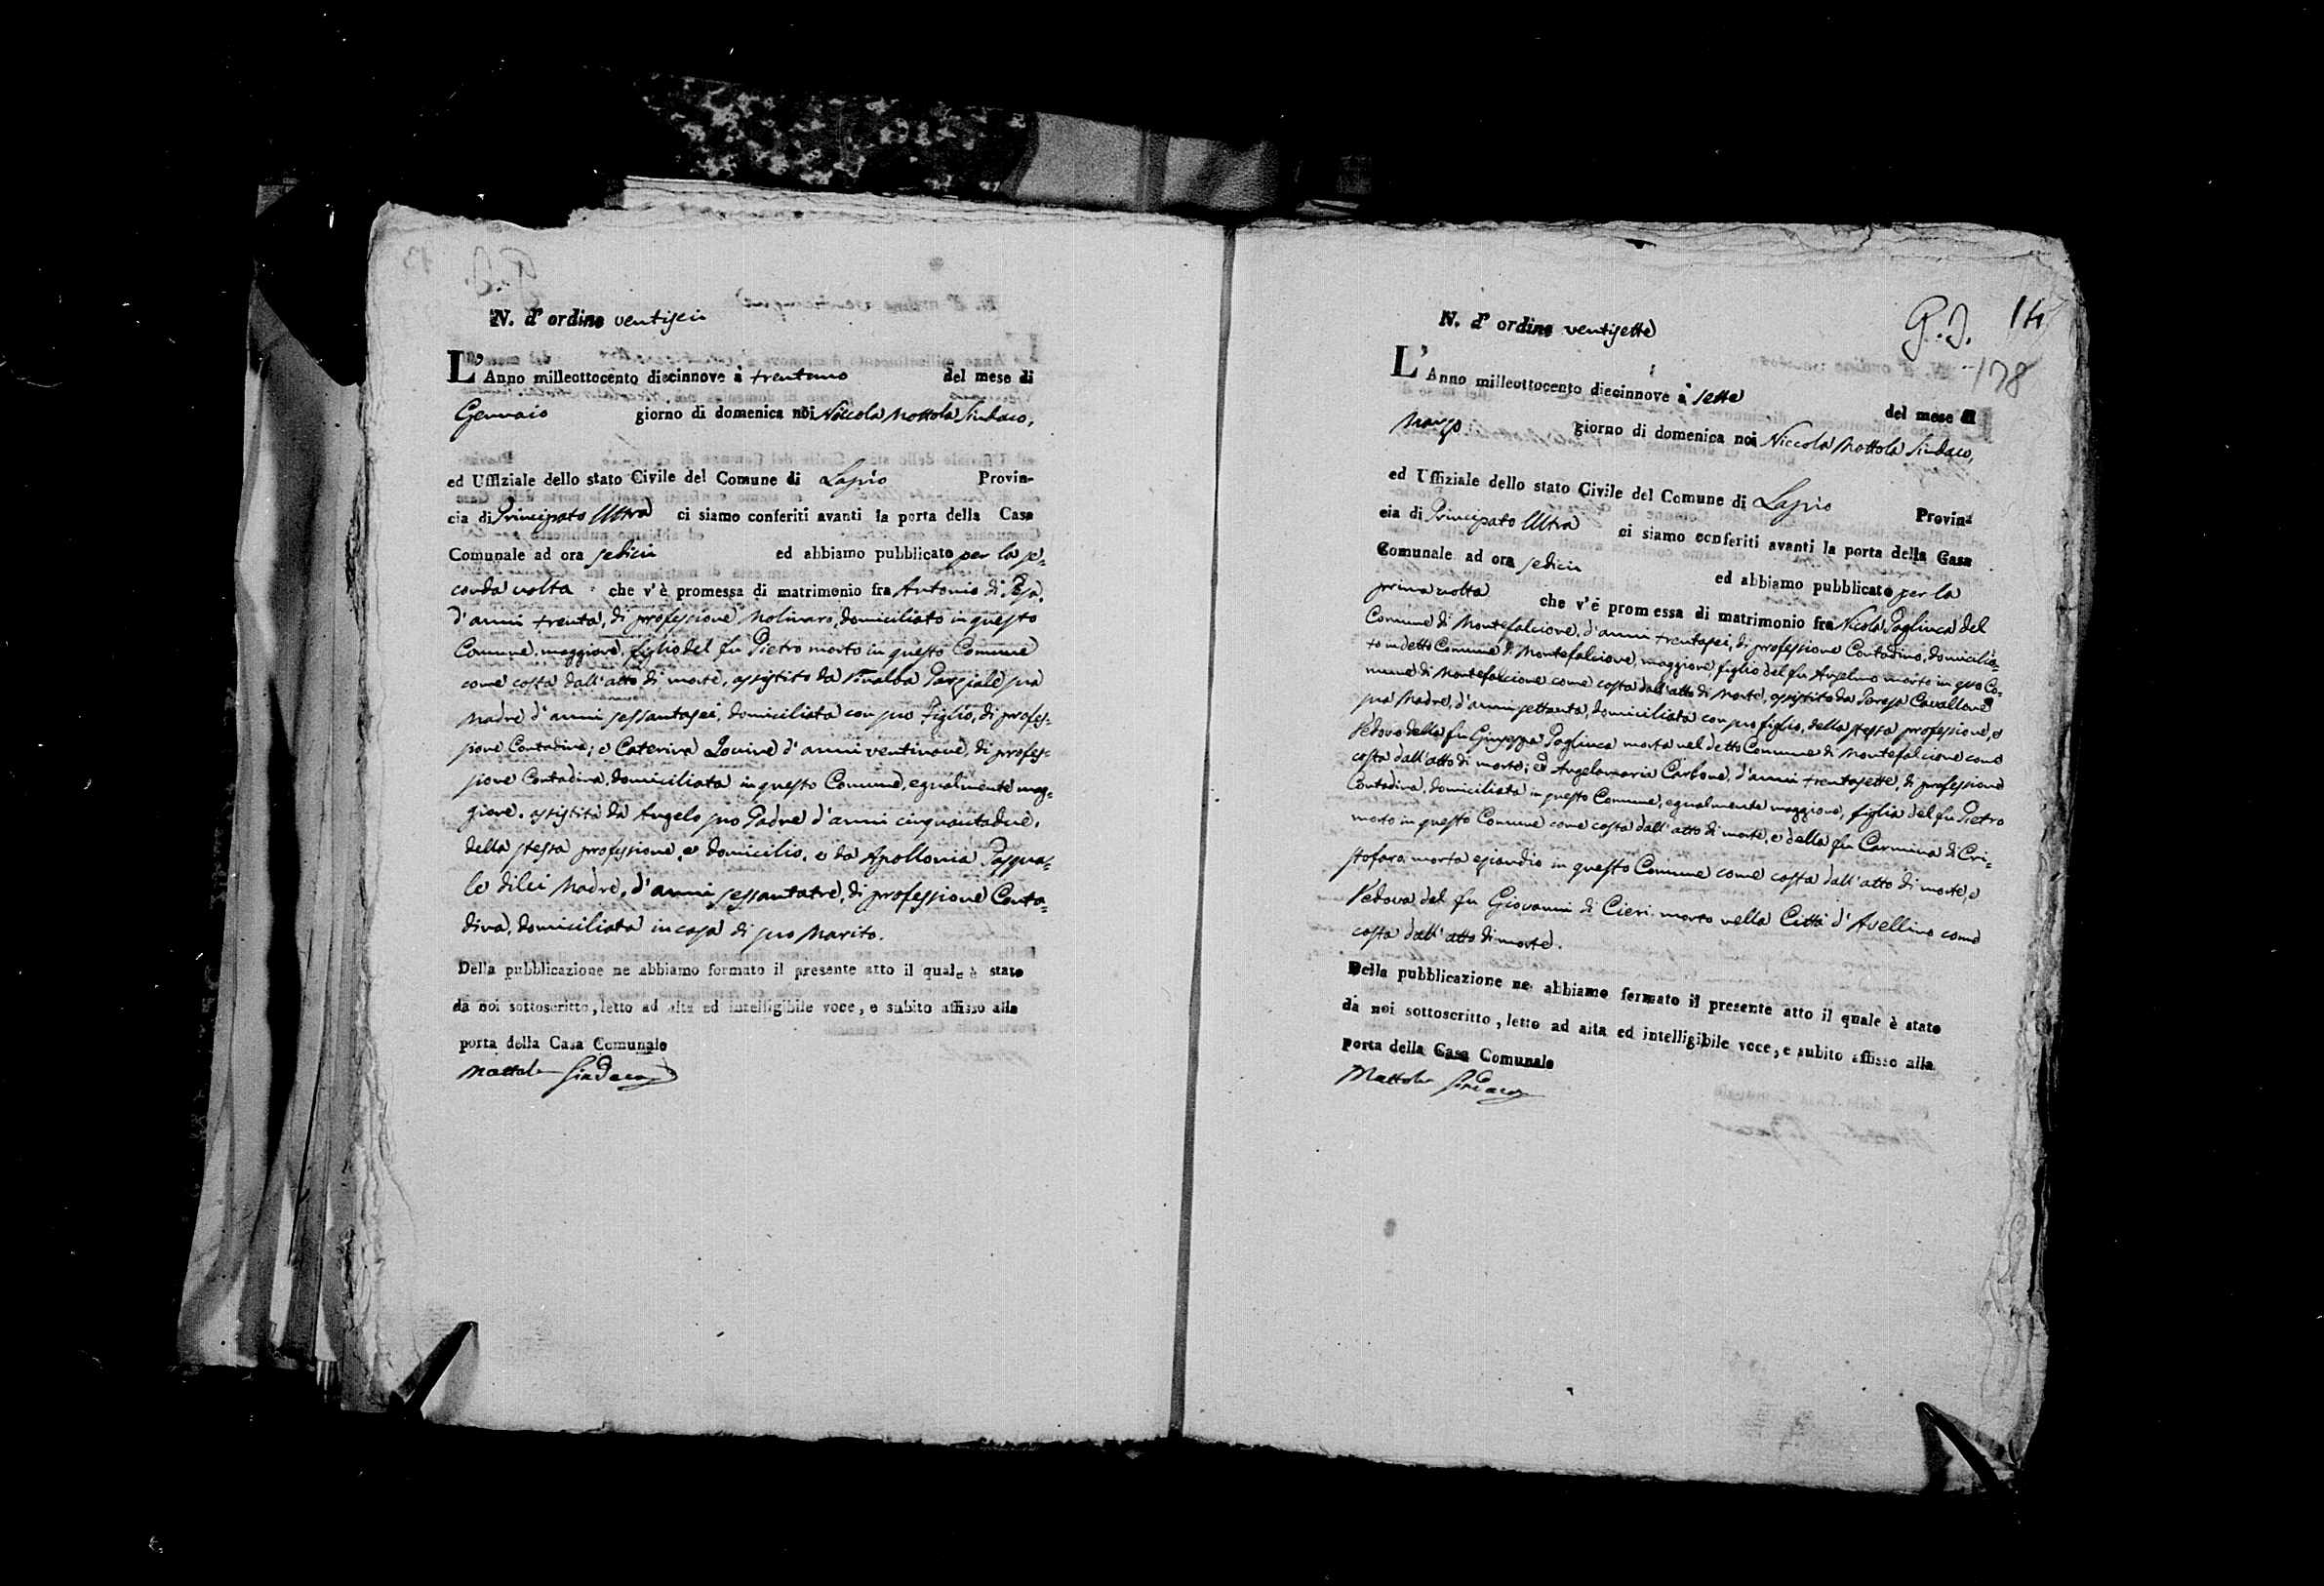 N. d' ordine ventisei
L' Anno milleottocento diecinnove à trentuno del mese di
Gennaio giorno di domenica noi Niccola Mottola Sindaco,
ed Uffiziale dello stato Civile del Comune di Lapio Provin-
cia di Principato Ultra ci siamo conferiti avanti la porta della Casa
Comunale ad ora sedici ed abbiamo pubblicato per la se-
conda volta che v'è promessa di matrimonio fra Antonio di
d'anni trenta, di professione Molinaro, domiciliato in questo
Comune, maggiore, figlio del fu Pietro morto in questo Comune
come costa dall'atto di morte, assistito da sua
Madre d'anni sessantasei, domiciliata con suo Figlio, di profes-
sione Contadina; e Caterina Iovine d'anni ventinove, di profes-
sione Contadina, domiciliata in questo Comune, egualmente mag-
giore, assistita da Angelo suo Padre d'anni cinquantadue,
della stessa professione, e domicilio, e da Apollonia Pasqua-
le di lei Madre, d'anni sessantatre, di professione Conta-
dina, domiciliata in casa di suo Marito.
Della pubblicazione ne abbiamo formato il presente atto il quale è stato
da noi sottoscritto, letto ad alta ed intelligibile voce, e subito affisso alla
porta della Casa Comunale
Mottola Sindaco
14
178
N. d' ordine ventisette
L' Anno milleottocento diecinnove à sette del mese di
Marzo giorno di domenica noi Niccola Mottola Sindaco,
ed Uffiziale dello stato Civile del Comune di Lapio Provin-
cia di Principato Ultra ci siamo conferiti avanti la porta della Casa
Comunale ad ora sedici ed abbiamo pubblicato per la
prima volta che v'è promessa di matrimonio fra Nicola Pagliuca del
Comune di Montefalcione, d'anni trentasei, di professione Contadino, domicilia-
to in detto Comune di Montefalcione, maggiore, figlio del fu Angelino morto in esso Co-
mune di Montefalcione come costa dall'atto di morte, assistito da Teresa Cavallone
sua Madre, d'anni settanta, domiciliata con suo figlio, della stessa professione, e
Vedovo della fu Giuseppa Pagliuca morta nel detto Comune di Montefalcione come
costa dall'atto di morte; ed Angelamaria Carbone, d'anni trentasette, di professione
Contadina, domiciliata in questo Comune, egualmente maggiore, figlia del fu Pietro
morto in questo Comune come costa dall'atto di morte, e della fu Carmina di Cri-
stofaro morta eziandio in questo Comune come costa dall'atto di morte, e
Vedova del fu Giovanni di Cieri morto nella Città d'Avellino come
costa dall'atto di morte.
Della pubblicazione ne abbiamo formato il presente atto il quale è stato
da noi sottoscritto, letto ad alta ed intelligibile voce, e subito affisso alla
porta della Casa Comunale
Mottola Sindaco